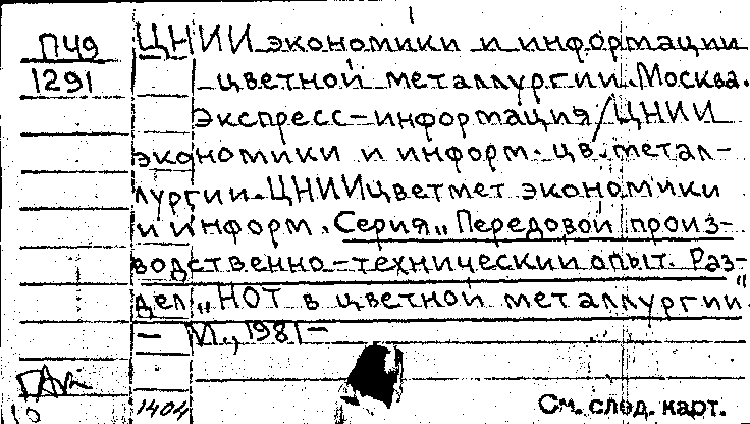 П49
1291
ЦНИИ экономики и информации
цветной металлургии. Москва.
Экспресс-информация / ЦНИИ
экономики и информ. цв. метал-
лургии. ЦНИИцветмет экономики
и информ. Серия „Передовой произ-
водственно-технический опыт. Раз-
дел „НОТ в цветной металлургии".
— М., 1981 —
1404
См. след. карт.